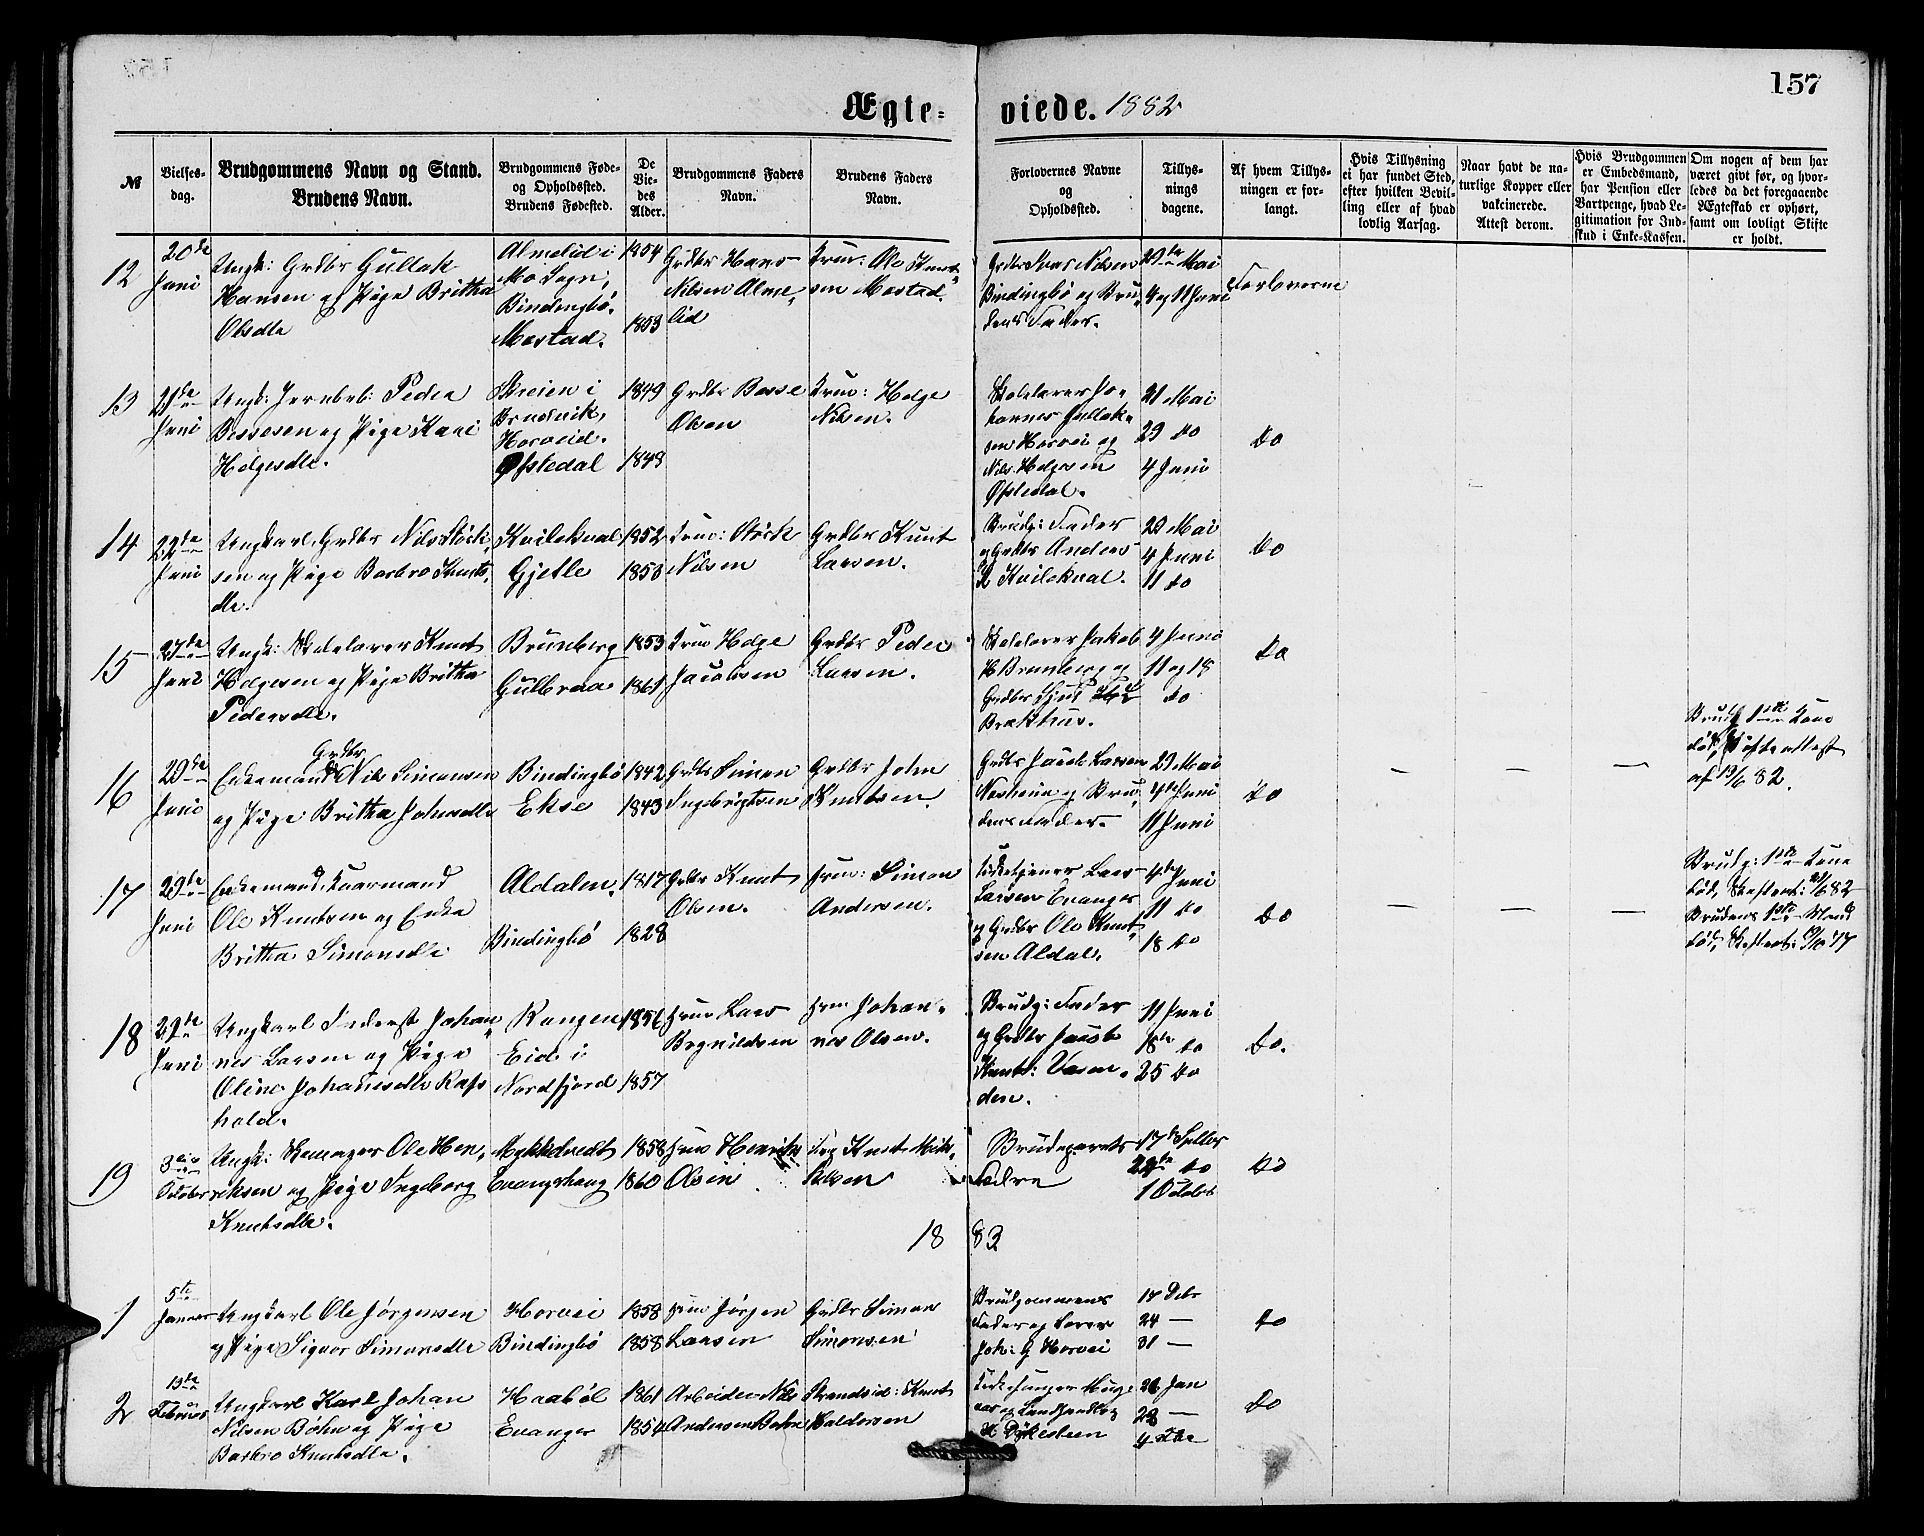 157
Ægte-
viede. 1882
№
Vielses-
dag.
Brudgommens Navn og Stand.
Brudens Navn.
Brudgommens Føde-
og Opholdssted.
Brudens Fødested.
De
Vie-
des
Alder.
Brudgommens Faders
Navn.
Brudens Faders
Navn.
Forlovernes Navne
og
Opholdssted.
Tillys-
nings
dagene.
Af hvem Tillys-
ningen er for-
langt.
Hvis Tillysning
ei har fundet Sted,
efter hvilken Bevil-
ling eller af hvad
lovlig Aarsag.
Naar havt de na-
turlige Kopper eller
vakcinerede.
Attest derom.
Hvis Brudgommen
er Embedsmand,
har Pension eller
Vartpenge, hvad Le-
gitimation for Ind-
skud i Enke-Kassen.
Om nogen af dem har
været givt før, og hvor-
ledes da det foregaaende
Ægteskab er ophørt,
samt om lovligt Skifte
er holdt.
12
20de
Juni
Ungk: Grdbr Gullak
Hansen og Pige Britha
Olsdtr
Almelid i
Mo Sogn,
Bindingbø.
Mestad.
1854
1853
Grdbr Hans
Nilsen Alme-
lid
Ole Knut-
sen Mestad.
Grdbr Nilsen
Bindingbø og Bru-
dens Fader.
29de Mai
4 og 11 Juni
Forloverne
13
21de
Juni
Ungk: Peder
Bessesen og Pige Kari
Helgesdtr.
Skreien i
Bruvik,
Horveid.
Øfstedal
1849
1848
Grdbr Besse
Olsen
Helge
Nilsen.
Skolelærer Jo-
hannes Gullak-
sen Horvei og
Nils Helgesen
Øfstedal.
21 Mai
29 do
4 Juni
do
14
22de
Juni
Ungkarl Grdbr Nils Størk-
sen og Pige Barbro Knuts-
dtr.
Kvilekval
Gjelle
1852
1850
Størk
Nilsen
Grdbr Knut
Larsen.
Brudg: Fader
og Grdbr Anders
Kvilekval.
29 Mai
4 Juni
11 do
do
15
27de
Juni
Ungk: Skolelærer Knut
Helgesen og Pige Britha
Pedersdtr.
Brunberg
Gulbraa
1853
1861
Helge
Jacobsen
Grdbr Peder
Larsen.
Skolelærer Jakob
H Brunberg og
Grdbr
Brækhus.
4 Juni
11 og 18
do
do
16
29de
Juni
Grdbr
Enkemand Nils Simonsen
og Pige Britha Johnsdtr
Bindingbø
Ekse
1842
1843
Grdbr Simon
Ingebrigtsen
Grdbr John
Knutsen.
Grdbr Jacob Larsen
Nesheim og Bru-
dens Fader.
29 Mai
4de Juni
11 Juni
do
—
—
—
Brudg 1ste Kone
død, Skifteattest
af 19/6 82.
17
29de
Juni
Enkemand, Kaarmand
Ole Knutsen og Enke
Britha Simonsdtr
Aldalen
Bindingbø
1817
1828
Grdbr Knut
Olsen.
Simon
Andersen.
Kirketjener Lars
Larsen Evanger
og Grdbr Ole Knut-
sen Aldal.
4de Juni
11 do
18 do
do
—
—
—
Brudg: 1ste Kone
død, Skifteat:
Brudens 1ste Mand
død, Skifteat:
18
29de
Juni
Ungkarl Inderst Johan-
nes Larsen og Pige
Oline Johannesdtr Kaps-
hold.
Rangen
Eid i
Nordfjord
1856
1857
Lars
Bognildsen
Johan-
nes Olsen.
Brudg: Fader
og Grdbr Jacob
Knuts: Vasen-
den.
11 Juni
18de do
25 do
do.
19
3die
October
Ungk: Ole Hen-
riksen og Pige Ingeborg
Knutsdtr.
Mykletvedt
Evangerhaug
1858
1860
Henrik
Olsen
Knut Mik-
kelsen
Brudeparrets
Fædre
17de Septbr
24de do
1 October
do
18 83
1
5te
Januar
Ungkarl Ole Jørgensen
og Pige Sigvor Simonsdtr
Horvei
Bindingbø
1858
1858
Jørgen
Larsen
Grdbr Simon
Simonsen
Brudgommens
Fader og Lærer
Joh: G Horvei
17 Debr
24 —
31 —
do
2
13de
Februar
Ungkarl Karl Johan
Nilsen Bøhn og Pige
Barbro Knutsdtr.
Haabøl
Evanger
1861
1854
Arbeider Nils
Andersen Bøhn
Strandsid: Knut
Haldorsen
Kirkesanger Mug-
aas og Landhandler
K Dykesteen
21 Jan
28 —
4 Febr
do